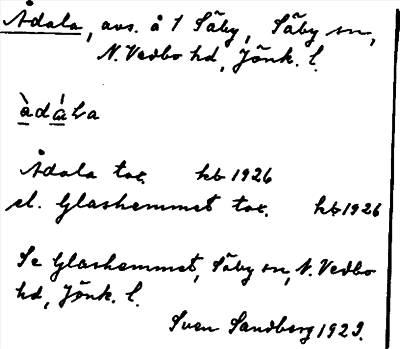 Ådala, avs. å 1 Säby, Säby sn,
N. Vedbo hd, Jönk. l.
àdáLa
Ådala tor. hb 1926
el. Glashemmet tor. hb 1926
Se Glashemmet, Säby sn, N. Vedbo
hd, Jönk. l.
Sven Sandberg 1929.